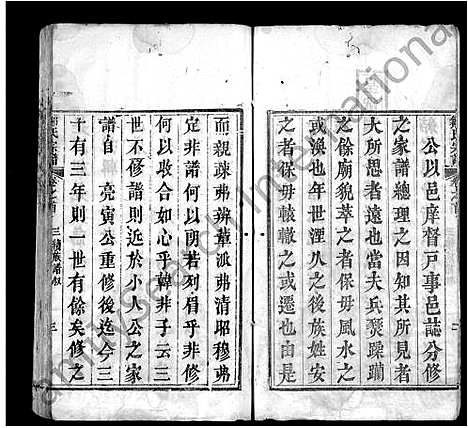 公以邑庠督戶事邑誌分修
之家譜總理之因知其所見者
大所思者遠也當夫兵燹蹂躪
之餘廟貌萃之者保毋風水之
或渙也年世湮人之後族姓安
之者保毋轅轍之或遷也由是
而親疎弗辨葦派弗清昭穆弗
定非譜何以朗若列眉乎非修
何以收合如心乎韓非子云三
世不修譜則近於小人公之家
譜自 亮寅公重修後迄今三
十有三年則一世有餘矣修之
氏宗譜
三續族譜敘
三